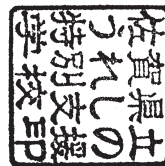 佐賀県立
うれしの
特別支援
学校印